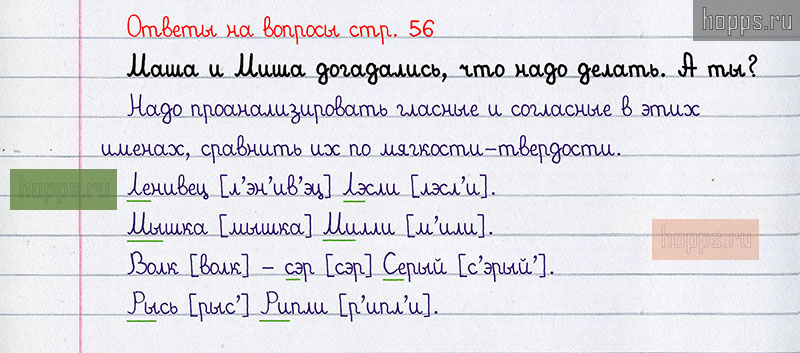 hopps.ru
Ответы на вопросы стр. 56
Маша и Миша догадались, что надо делать. А ты?
Надо проанализировать гласные и согласные в этих
именах, сравнить их по мягкости-твердости.
hopps.ru
Ленивец [л’эн’ив’эц] Лэсли [лэсл’и].
Мышка [мышка] Милли [м’или].
hopps.ru
Волк [волк] – сэр [сэр] Серый [с’эрый’].
Рысь [рыс’] Рипли [р’ипл’и].